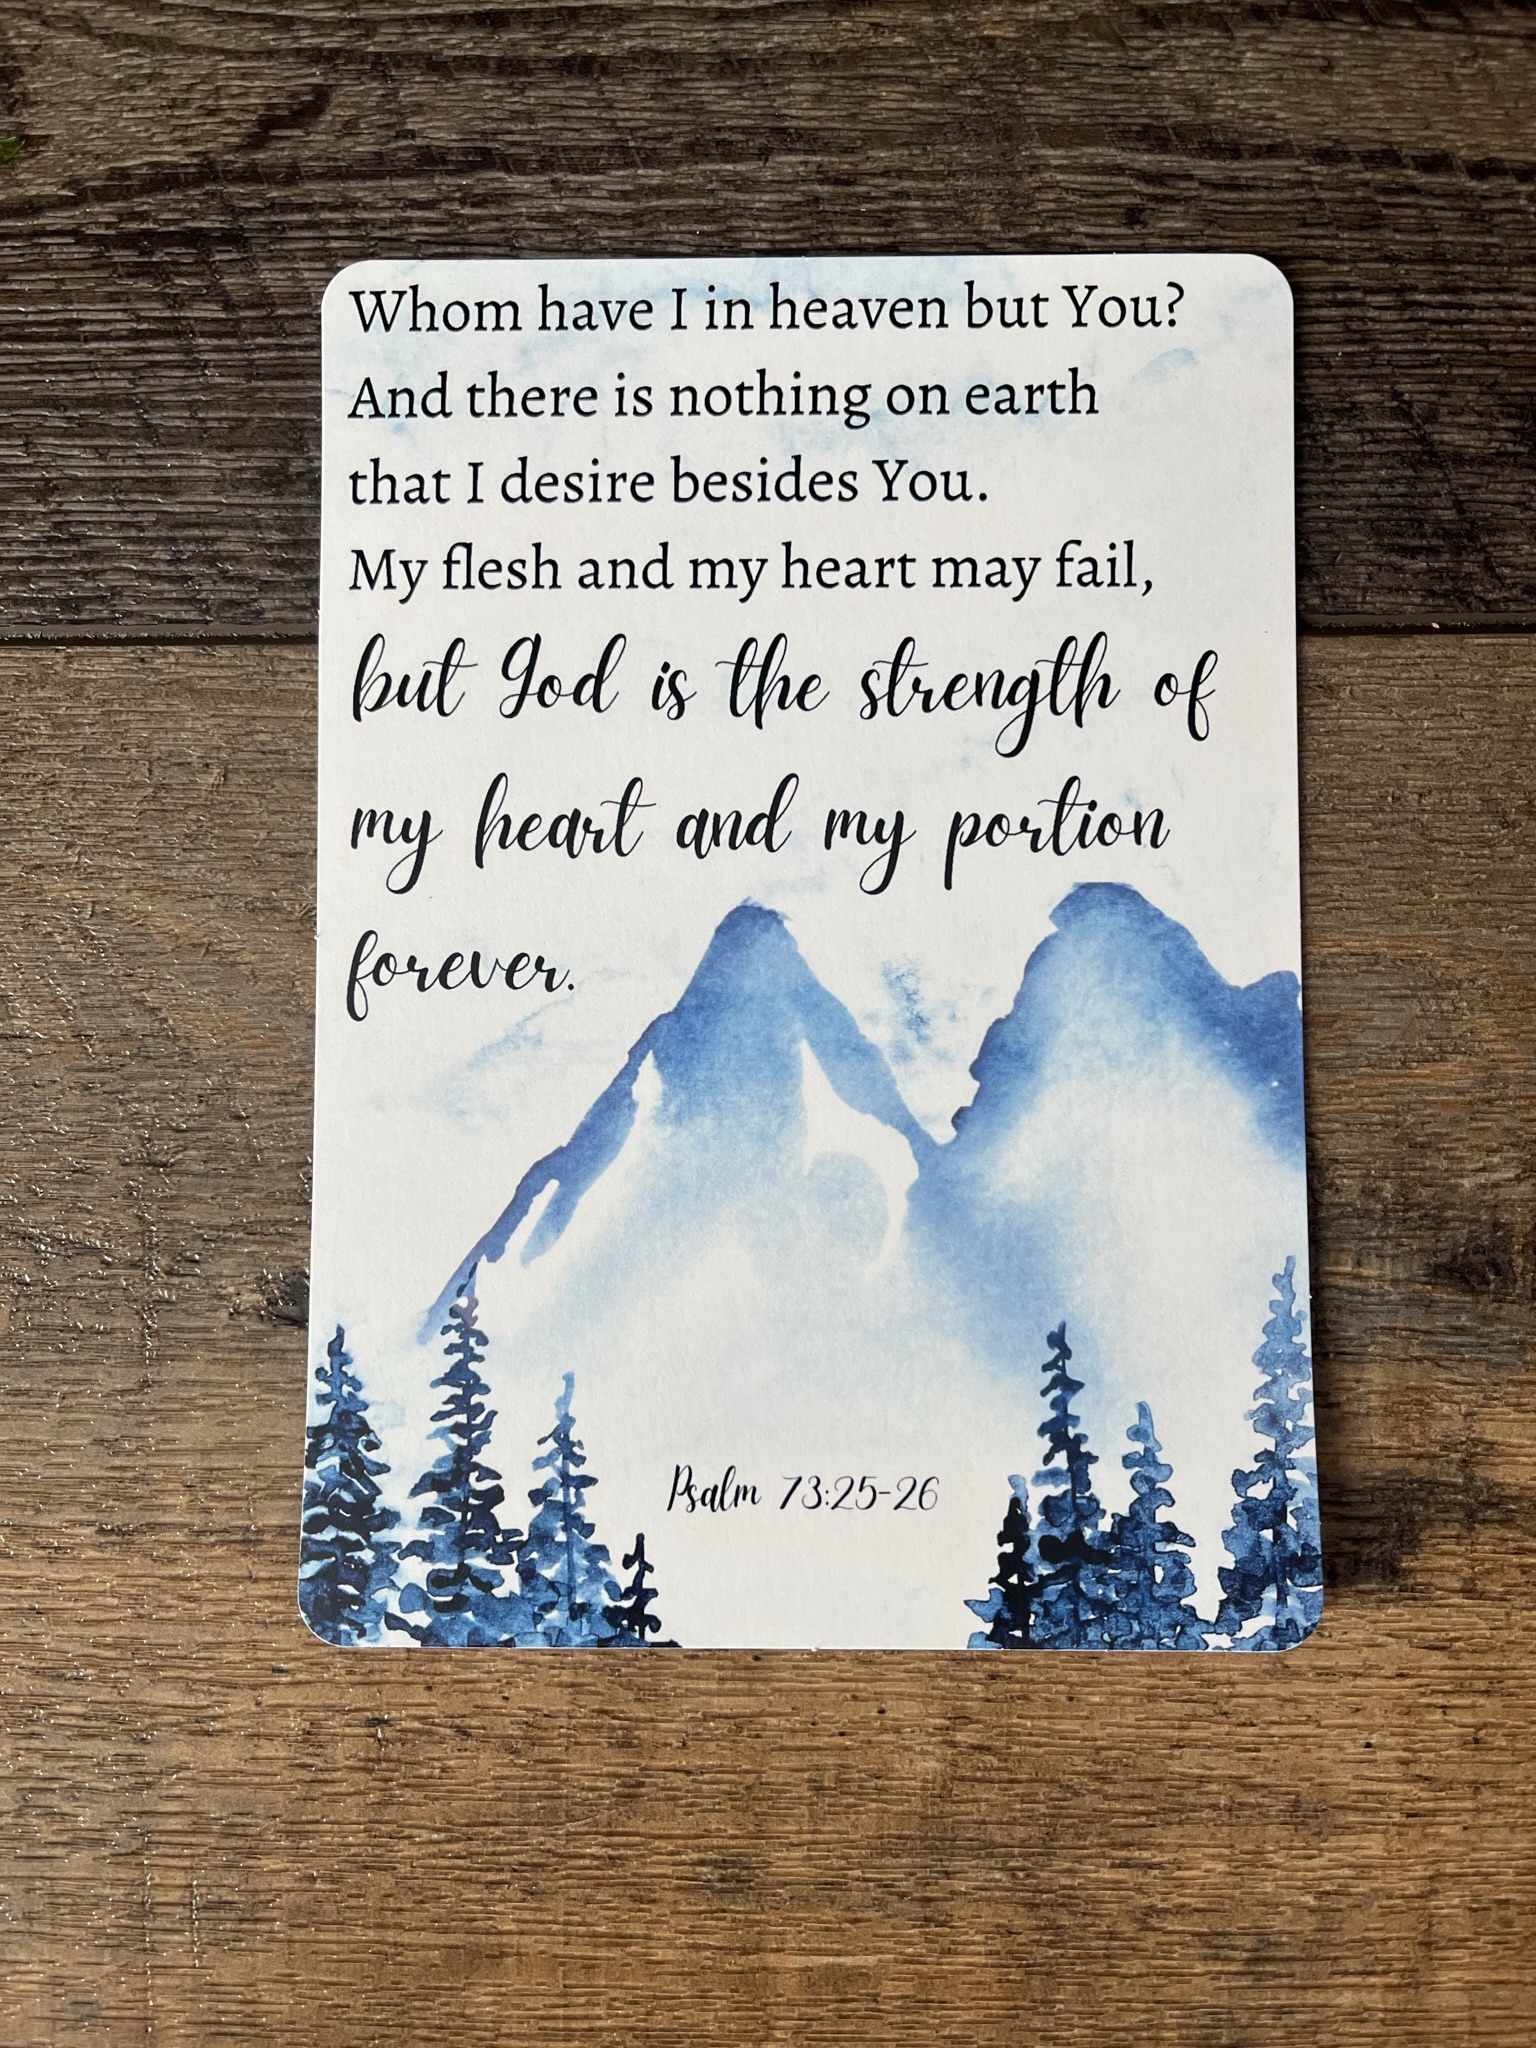 Whom have I in heaven but You?
And there is nothing on earth
that I desire besides You.
My flesh and my heart may fail,
but God is the strength of
my heart and my portion
forever.
Psalm 73:25-26